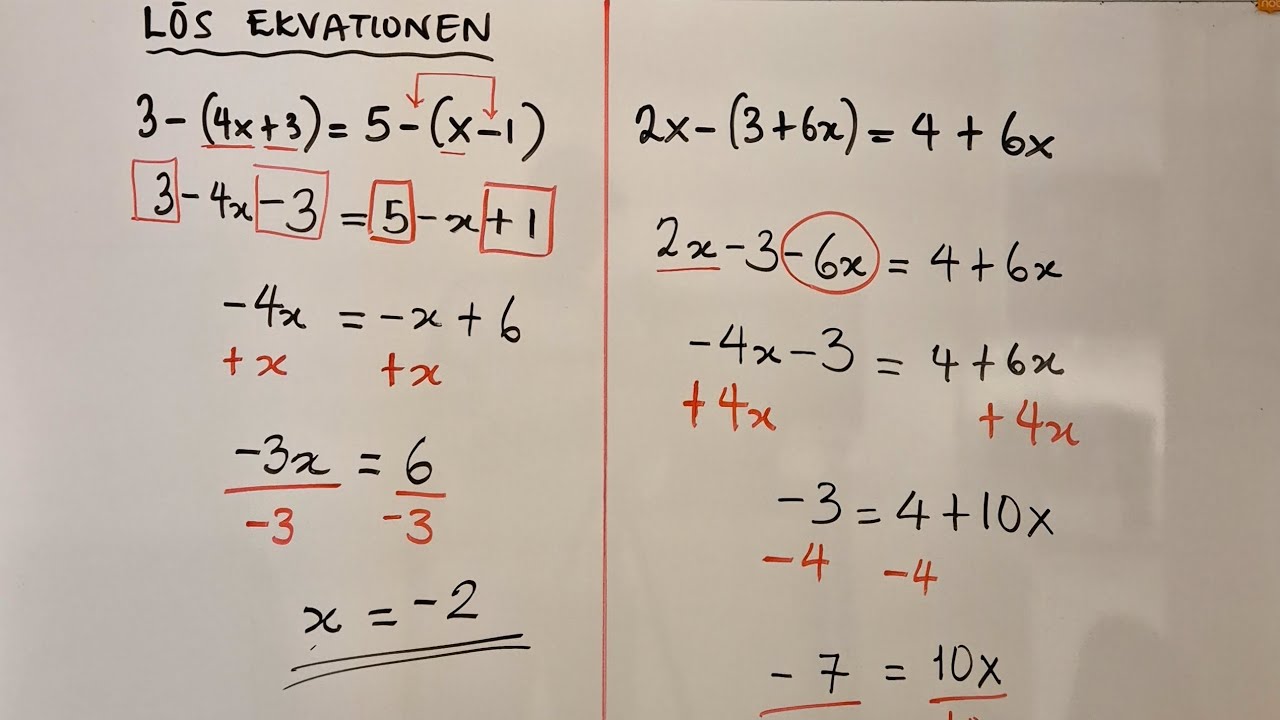 LÖS EKVATIONEN
3-(4x+3)=5-(x-1)
3-4x-3=5-x+1
-4x=-x+6
+x +x
-3x=6
-3 -3
x=-2
2x-(3+6x)=4+6x
2x-3-6x=4+6x
-4x-3=4+6x
+4x +4x
-3=4+10x
-4 -4
-7=10x